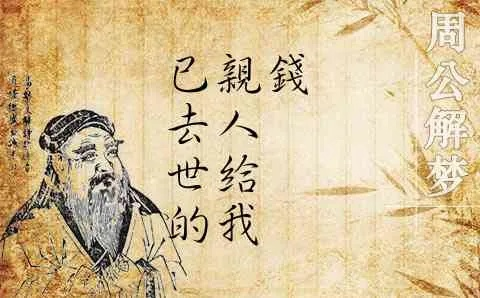 已去世的
親人給我
錢
周公解梦